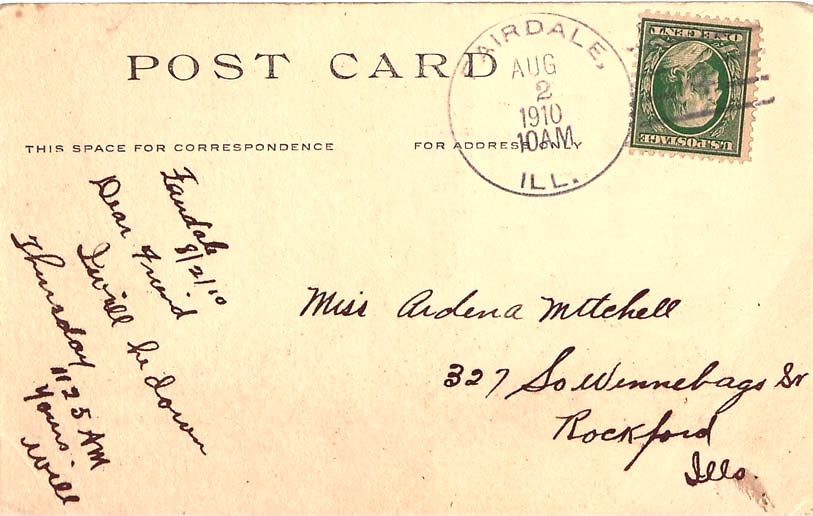 POST CARD
FAIRDALE,
AUG
2
1910
10AM
ILL.
ONE CENT
U.S. POSTAGE
THIS SPACE FOR CORRESPONDENCE
FOR ADDRESS ONLY
8/2/10
Dear Friend
I will be down
Thursday
11 25 AM
Yours.
Will
Miss Ardena Mitchell
327 So Winnebago St
Rockford
Ills.